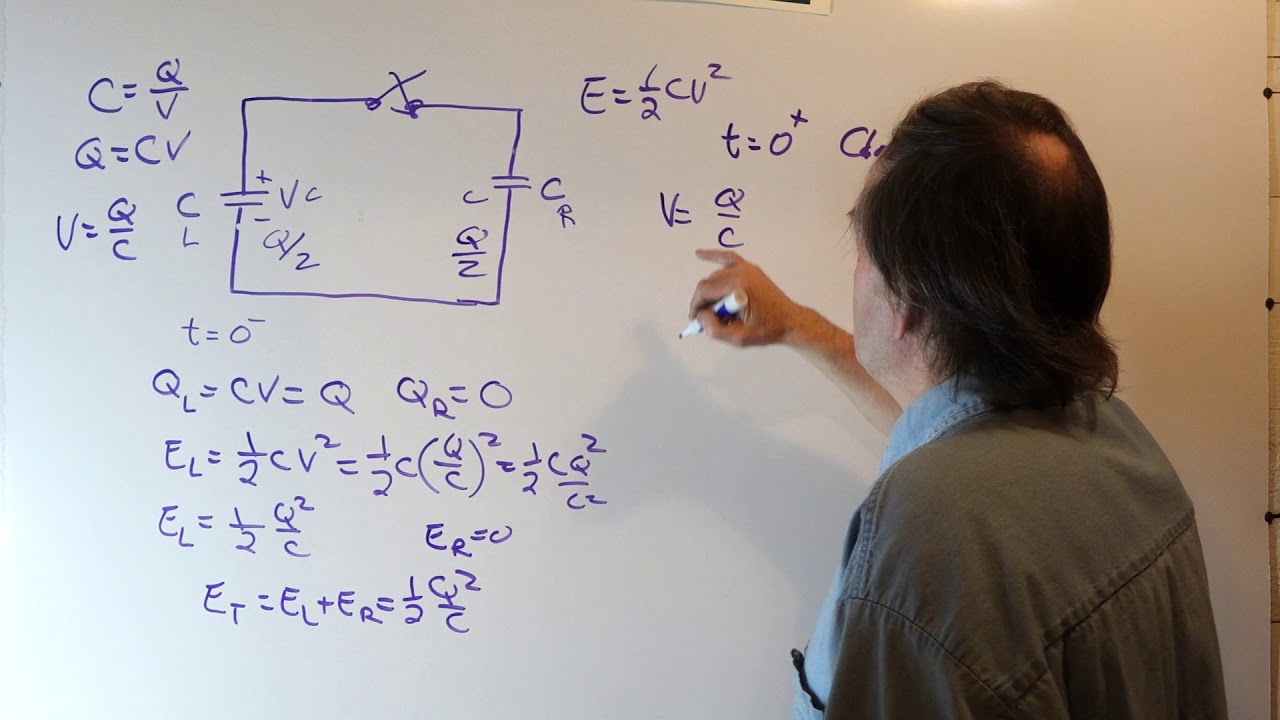 C = Q/V
Q = CV
V = Q/C
C L
+ Vc
-
Q/2
C
C_R
Q/2
E = 1/2 CV²
t = 0⁺
V = Q/C
t = 0⁻
Q_L = CV = Q Q_R = 0
E_L = 1/2 CV² = 1/2 C(Q/C)² = 1/2 CQ²/C²
E_L = 1/2 Q²/C E_R = 0
E_T = E_L + E_R = 1/2 Q²/C